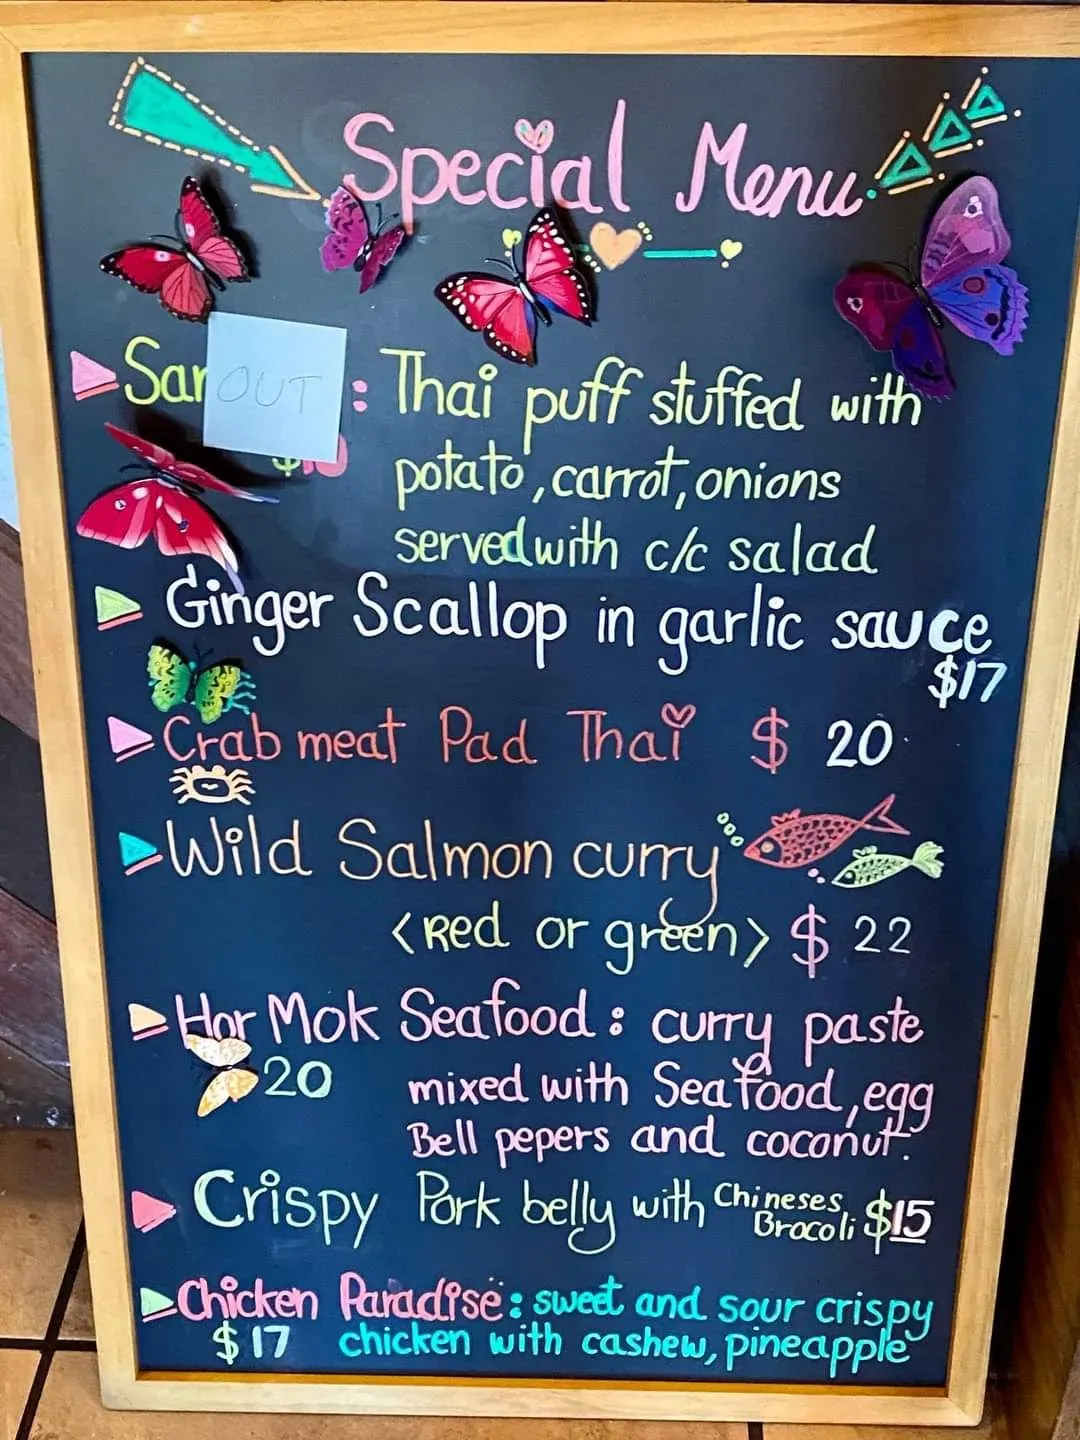 Special Menu
OUT : Thai puff stuffed with
potato, carrot, onions
served with c/c salad
Ginger Scallop in garlic sauce
$17
Crab meat Pad Thai $ 20
Wild Salmon curry
<Red or green> $ 22
Hor Mok Seafood : curry paste
20 mixed with Seafood, egg
Bell pepers and coconut.
Crispy Pork belly with Chineses
Brocoli $15
Chicken Paradise : sweet and sour crispy
$17 chicken with cashew, pineapple